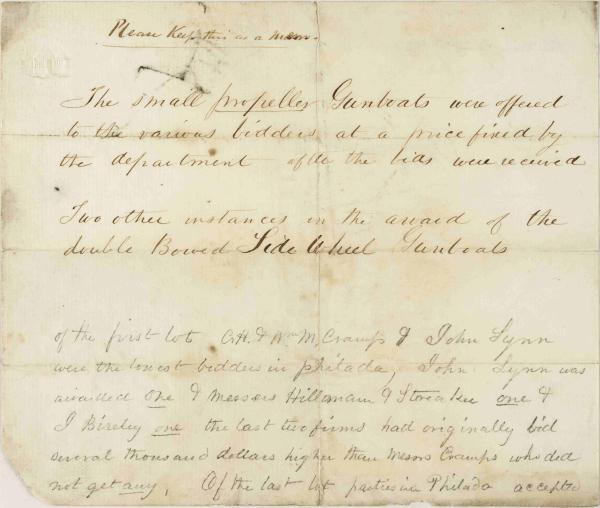 Please Keep this as a memo.
The small propeller Gunboats were offered
to the various bidders at a price fixed by
the department after the bids were received
Two other instances in the award of the
double Bowed Side Wheel Gunboats
of the first lot C.H. & Wm M. Cramps & John Lynn
were the lowest bidders in philada, John Lynn was
awarded one & messers Hillman & Streaker one &
J Bireley one the last two firms had originally bid
several thousand dollars higher than Messrs Cramps who did
not get any, Of the last lot parties in Philada accepted